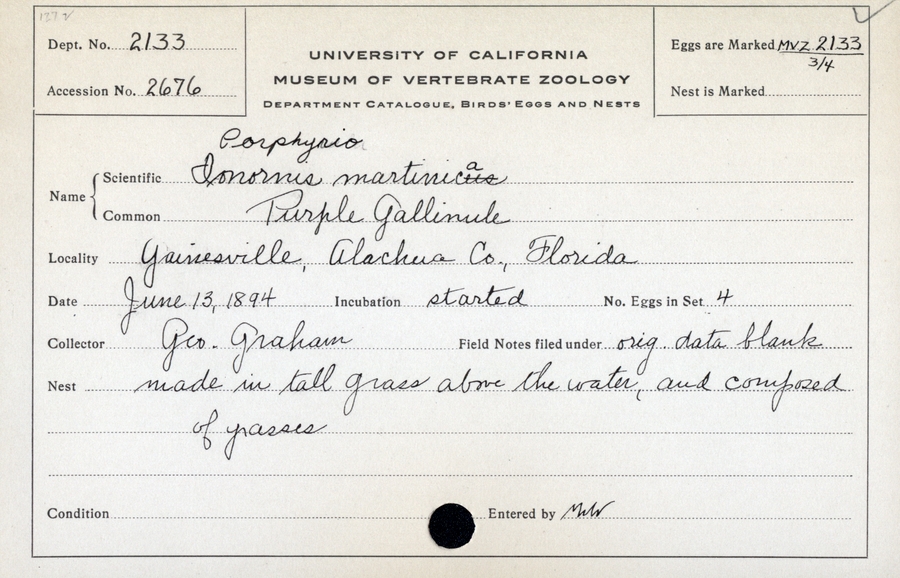 137 ✓
Dept. No. 2133
UNIVERSITY OF CALIFORNIA
MUSEUM OF VERTEBRATE ZOOLOGY
DEPARTMENT CATALOGUE, BIRDS' EGGS AND NESTS
Eggs are Marked MVZ 2133
3/4
Accession No. 2676
Nest is Marked
Porphyrio
Name Scientific Ionornis martinicaus
Common Purple Gallinule
Locality Gainesville, Alachua Co., Florida
Date June 13, 1894 Incubation started No. Eggs in Set 4
Collector Geo. Graham Field Notes filed under orig. data blank
Nest made in tall grass above the water, and composed
of grasses
Condition Entered by